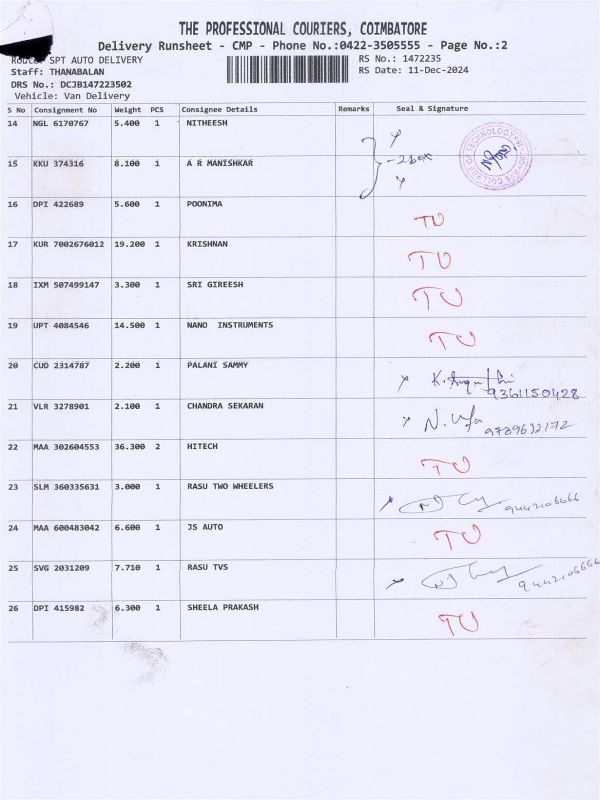 THE PROFESSIONAL COURIERS, COIMBATORE
Delivery Runsheet - CMP - Phone No.:0422-3505555 - Page No.:2
SPT AUTO DELIVERY
RS No.: 1472235
Staff: THANABALAN
RS Date: 11-Dec-2024
DRS No.: DCJB147223502
Vehicle: Van Delivery
S No Consignment No Weight PCS Consignee Details Remarks Seal & Signature
14 NGL 6170767 5.400 1 NITHEESH
15 KKU 374316 8.100 1 A R MANISHKAR -2 box
16 DPI 422689 5.600 1 POONIMA TU
17 KUR 7002676012 19.200 1 KRISHNAN TU
18 IXM 507499147 3.300 1 SRI GIREESH TU
19 UPT 4084546 14.500 1 NANO INSTRUMENTS TU
20 CUD 2314787 2.200 1 PALANI SAMMY K. 9361150428
21 VLR 3278901 2.100 1 CHANDRA SEKARAN N.
22 MAA 302604553 36.300 2 HITECH TU
23 SLM 360335631 3.000 1 RASU TWO WHEELERS 9442106666
24 MAA 600483042 6.600 1 JS AUTO TU
25 SVG 2031209 7.710 1 RASU TVS 9442106666
26 DPI 415982 6.300 1 SHEELA PRAKASH TU